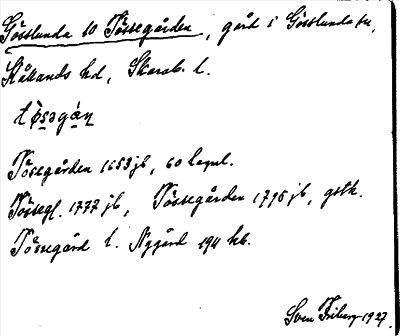 Gösslunda 10 Tössegården, gård i Gösslunda sn,
Kållands hd, Skarab. l.
tø̀sәgán
Tösegården 1653 jb, 60
Tössegl. 1777 jb, Tössegården 1795 jb,
Tössegård l. Nygård 194 kb.
Sven Friberg 1927.